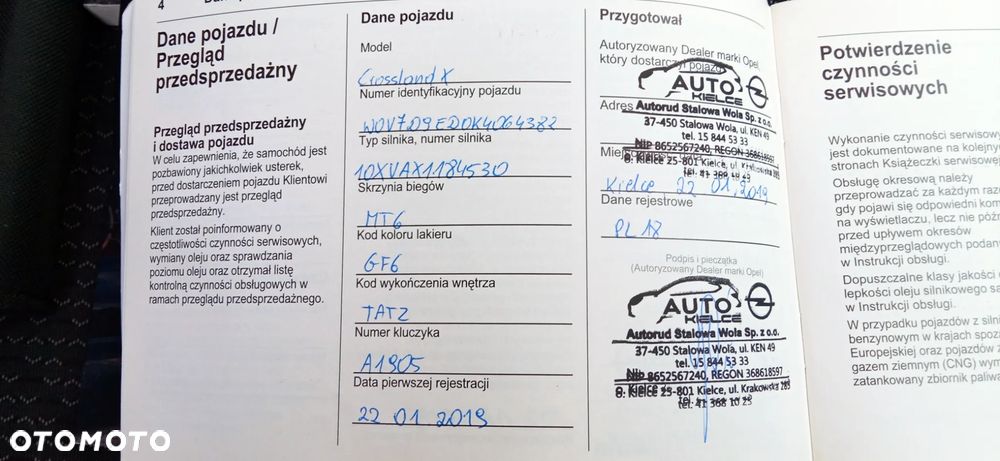 4
Dane pojazdu /
Przegląd
przedsprzedażny
Przegląd przedsprzedażny
i dostawa pojazdu
W celu zapewnienia, że samochód jest
pozbawiony jakichkolwiek usterek,
przed dostarczeniem pojazdu Klientowi
przeprowadzany jest przegląd
przedsprzedażny.
Klient został poinformowany o
częstotliwości czynności serwisowych,
wymiany oleju oraz sprawdzania
poziomu oleju oraz otrzymał listę
kontrolną czynności obsługowych w
ramach przeglądu przedsprzedażnego.
Dane pojazdu
Model
Crossland X
Numer identyfikacyjny pojazdu
W0V7D9EDOK4064382
Typ silnika, numer silnika
10XVAX1184530
Skrzynia biegów
MT6
Kod koloru lakieru
GF6
Kod wykończenia wnętrza
TATZ
Numer kluczyka
A1905
Data pierwszej rejestracji
22 01 2019
Przygotował
Autoryzowany Dealer marki Opel,
który dostarczył pojazd
AUTO
KIELCE
Adres
Autorud Stalowa Wola Sp. z o.o.
37-450 Stalowa Wola, ul. KEN 49
tel. 15 844 53 33
NIP 8652567240, REGON 368618597
O. Kielce 25-801 Kielce, ul. Krakowska 285
tel. 41 368 10 25
Kielce, 22 01.2019
Dane rejestrowe
PL 18
Podpis i pieczątka
(Autoryzowany Dealer marki Opel)
AUTO
KIELCE
Autorud Stalowa Wola Sp. z o.o.
37-450 Stalowa Wola, ul. KEN 49
tel. 15 844 53 33
NIP 8652567240, REGON 368618597
O. Kielce 25-801 Kielce, ul. Krakowska 285
tel. 41 368 10 25
Potwierdzenie
czynności
serwisowych
Wykonanie czynności serwisowy
jest dokumentowane na kolejny
stronach Książeczki serwisowe
Obsługę okresową należy
przeprowadzać za każdym raze
gdy pojawi się odpowiedni kom
na wyświetlaczu, lecz nie późn
przed upływem okresów
międzyprzeglądowych podan
w Instrukcji obsługi.
Dopuszczalne klasy jakości
lepkości oleju silnikowego są
w Instrukcji obsługi.
W przypadku pojazdów z silni
benzynowym w krajach spoza
Europejskiej oraz pojazdów z
gazem ziemnym (CNG) wym
zatankowany zbiornik paliwa
OTOMOTO